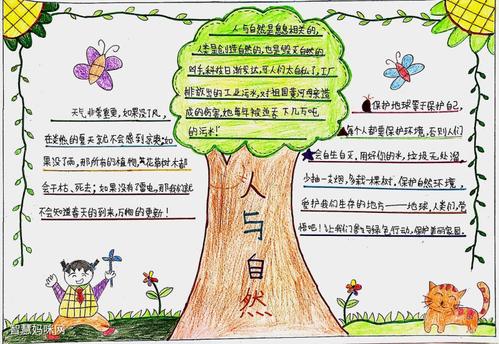 人与自然是息息相关的,
人类是创造自然的,也是毁灭自然的
凶手,科技日渐发达,可人们太自私了,工厂
排放出的工业污水,对祖国黄河母亲造
成的伤害,她每年被迫丢下几万吨
的污水!
天气非常重要,如果没了风,
在炎热的夏天就不会感到凉爽;如
果没了雨,那所有的植物,黄花草树木都
会干枯、死去;如果没有了雷电,那我们就
不会知道春天的到来,万物的更新!
保护地球等于保护自己,
每个人都要保护环境,否则人们
会自生自灭,用好你的水,垃圾无处溜,
少抽一支烟,多栽一棵树,保护自然环境,
爱护我们生存的地方——地球,人类们,觉
悟吧!让我们参与绿色行动,保护美丽家园.
人
与
自
然
智慧妈咪网